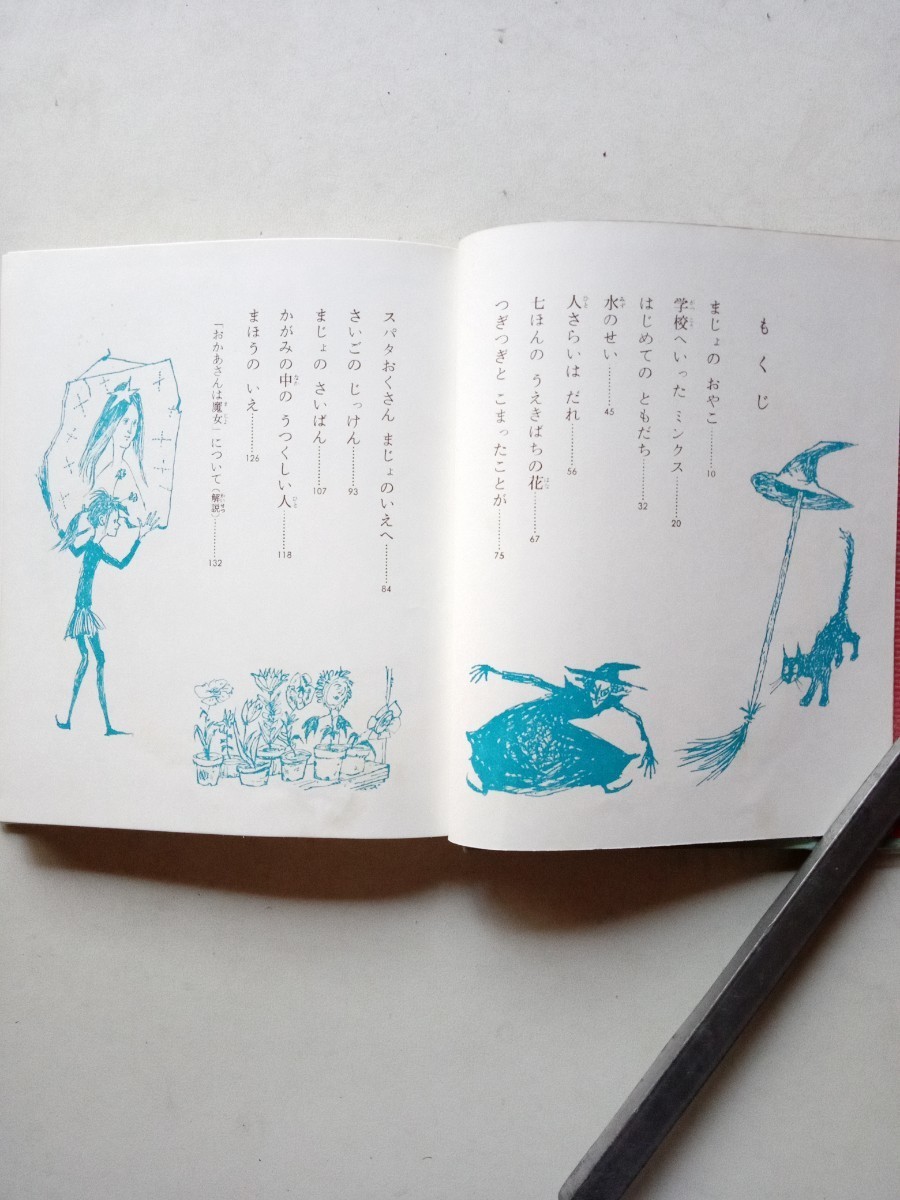 もくじ
まじょの おやこ………10
学校へいった ミンクス………20
はじめての ともだち………32
水のせい………45
人さらいは だれ………56
七ほんの うえきばちの花………67
つぎつぎと こまったことが………75
スパタおくさん まじょのいえへ………84
さいごの じっけん………93
まじょの さいばん………107
かがみの中の うつくしい人………118
まほうの いえ………126
「おかあさんは魔女」について〈解説〉………132